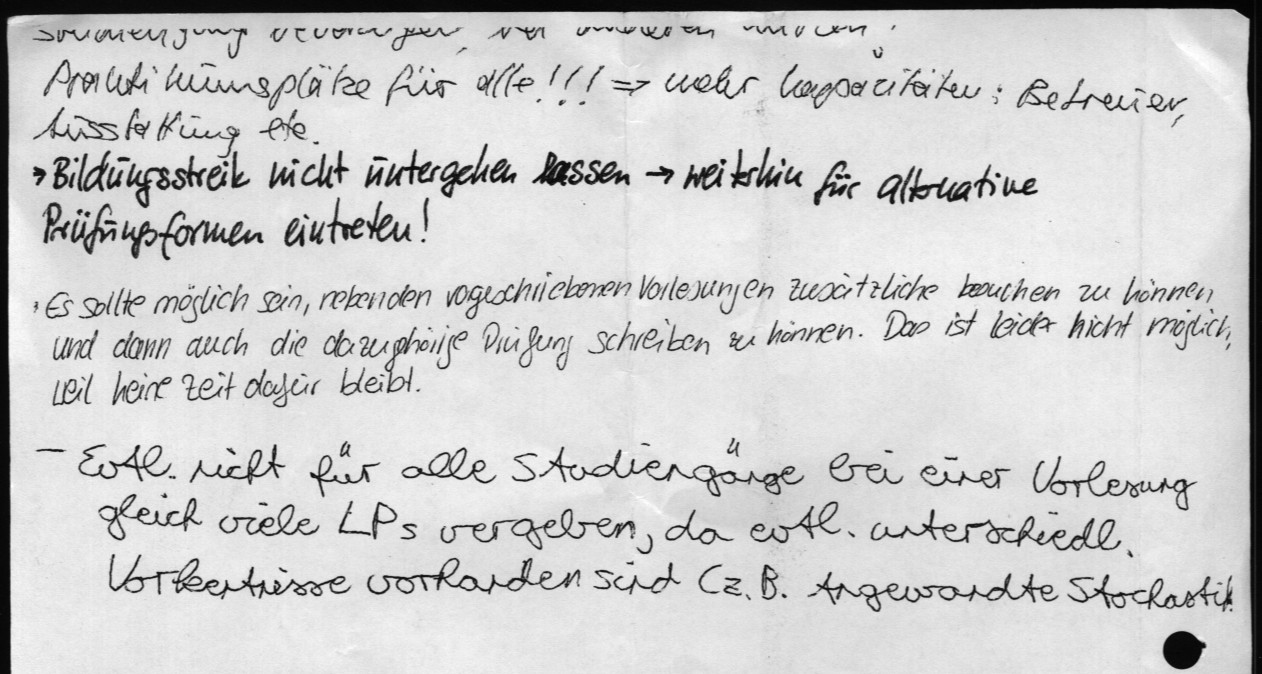 Praktikumsplätze für alle!!! => mehr Kapazitäten: Betreuer,
Ausstattung etc.
→ Bildungsstreik nicht untergehen lassen → weiterhin für alternative
Prüfungsformen eintreten!
Es sollte möglich sein, neben den vorgeschriebenen Vorlesungen zusätzliche besuchen zu können
und dann auch die dazugehörige Prüfung schreiben zu können. Das ist leider nicht möglich,
weil keine Zeit dafür bleibt.
– Evtl. nicht für alle Studiengänge bei einer Vorlesung
gleich viele LPs vergeben, da evtl. unterschiedl.
Vorkentnisse vorhanden sind (z.B. Angewandte Stochastik